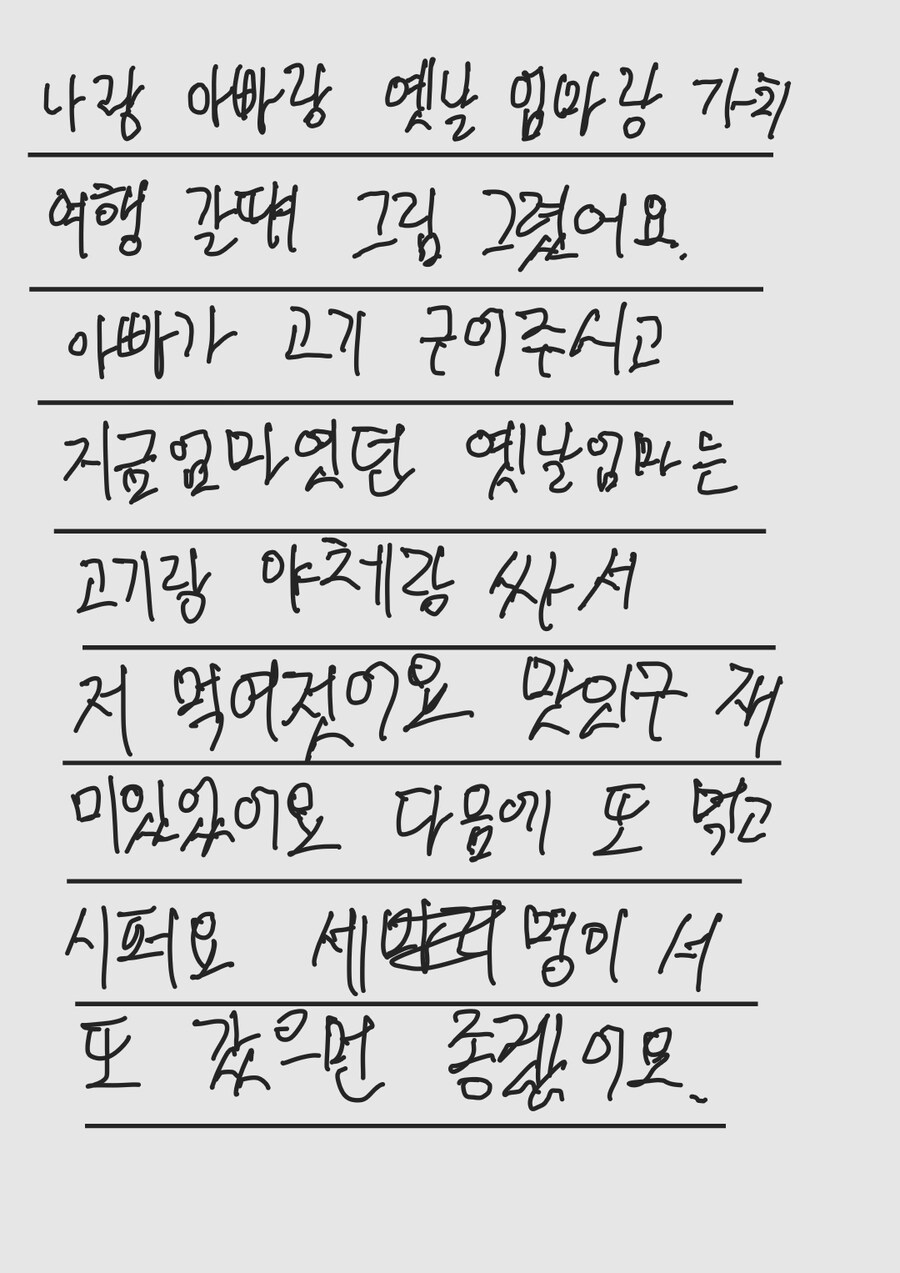 나랑 아빠랑 옛날 엄마랑 가치
여행 갈떄 그림 그렸어요.
아빠가 고기 구어주시고
지금엄마였던 옛날엄마는
고기랑 야체랑 싸서
저 먹여젓어요 맛잇구 재
미있었어요 다음에 또 먹고
시퍼요 세 명이서
또 갔으면 종겠어요.